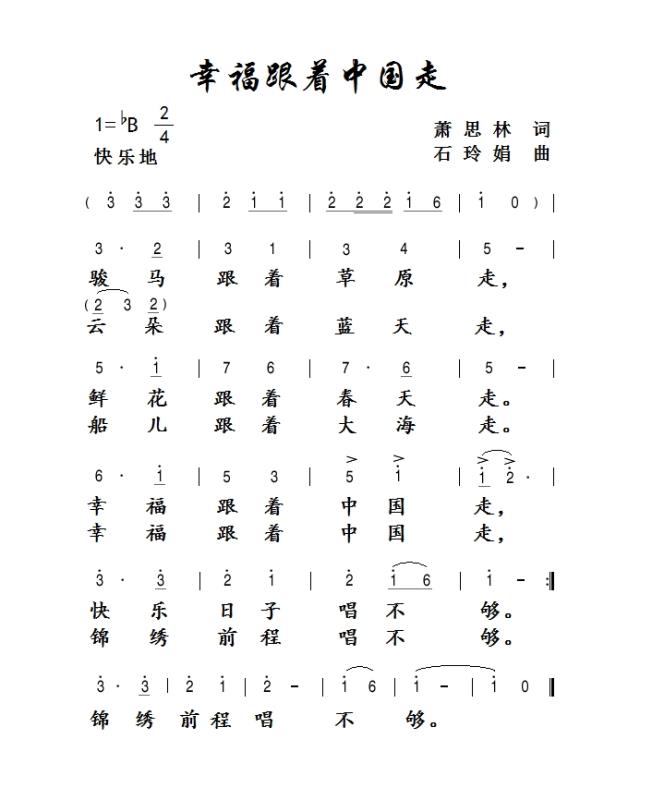 幸福跟着中国走
1=♭B 2/4
萧思林 词
快乐地
石玲娟 曲
( 3 3 3 | 2 1 1 | 2 2 2 1 6 | 1 0 ) |
3 · 2 | 3 1 | 3 4 | 5 - |
骏马 跟着 草原 走，
( 2 3 2 )
云朵 跟着 蓝天 走，
5 · 1 | 7 6 | 7 · 6 | 5 - |
鲜花 跟着 春天 走。
船儿 跟着 大海 走。
6 · 1 | 5 3 | 5 1 | 1 2 · |
幸福 跟着 中国 走，
幸福 跟着 中国 走，
3 · 3 | 2 1 | 2 1 6 | 1 - :|
快乐 日子 唱不 够。
锦绣 前程 唱不 够。
3 · 3 | 2 1 | 2 - | 1 6 | 1 - | 1 0 |
锦绣前程唱 不 够。